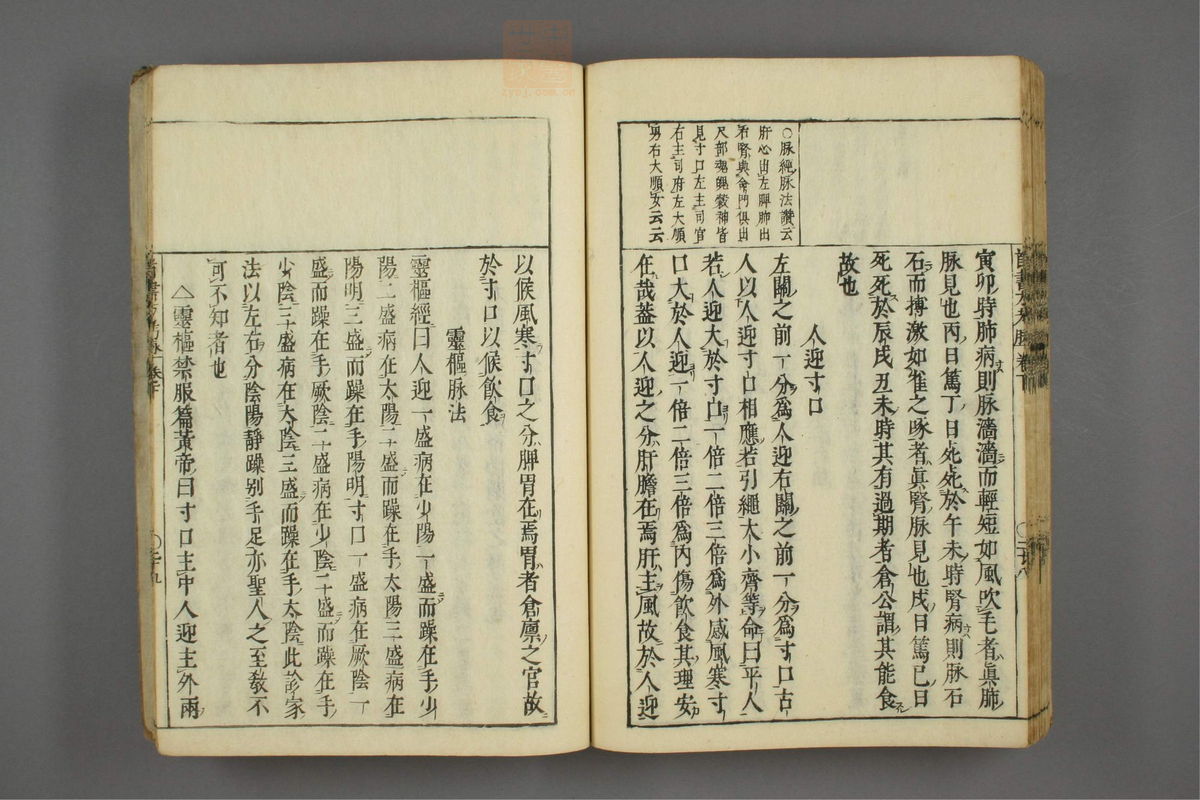 ○脉經脉法讚云
肝心出左脾肺出
右腎與命門俱出
尺部魂魄穀神皆
見寸口左主司官
右主司府左大順
男右大順女云云
寅卯時肺病則脉濇濇而輕短如風吹毛者眞肺
脉見也丙日篤丁日死死於午未時腎病則脉石
石而搏激如雀之啄者眞腎脉見也戌日篤已日
死死於辰戌丑未時其有過期者倉公謂其能食
故也
人迎寸口
左關之前一分爲人迎右關之前一分爲寸口古
人以人迎寸口相應若引繩大小齊等命曰平人
若人迎大於寸口一倍二倍三倍爲外感風寒寸
口大於人迎一倍二倍三倍爲内傷飲食其理安
在哉蓋以人迎之分肝膽在焉肝主風故於人迎
以候風寒寸口之分脾胃在焉胃者倉廪之官故
於寸口以候飲食
靈樞脉法
靈樞經曰人迎一盛病在少陽一盛而躁在手少
陽二盛病在太陽二盛而躁在手太陽三盛病在
陽明三盛而躁在手陽明寸口一盛病在厥陰一
盛而躁在手厥陰二盛病在少陰二盛而躁在手
少陰三盛病在太陰三盛而躁在手太陰此診家
法以左右分陰陽靜躁别手足亦聖人之至教不
可不知者也
△靈樞禁服篇黄帝曰寸口主中人迎主外兩